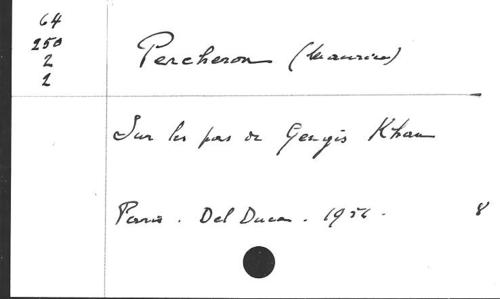 64
250
2
2
Percheron (Maurice)
Sur les pas de Gengis Khan
Paris. Del Duca. 1956. 8